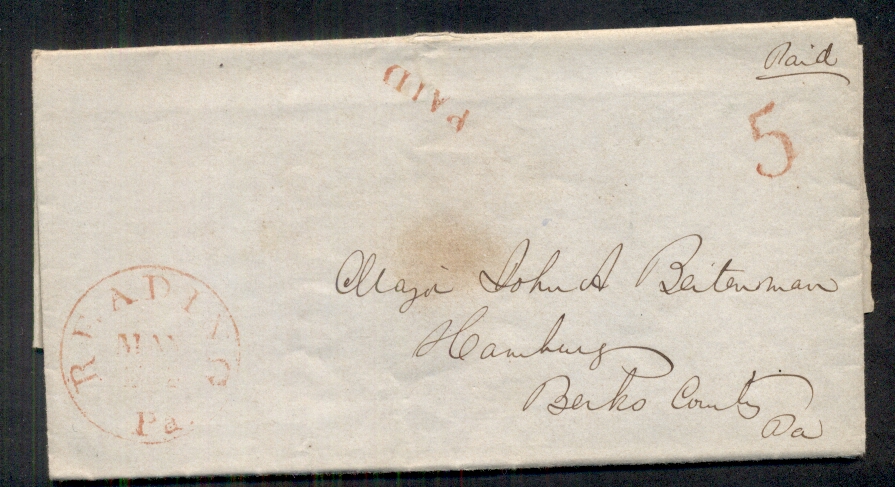 Paid
PAID
5
Major John A Beitenman
Hamburg
Berks County
Pa
READING
MAY
Pa